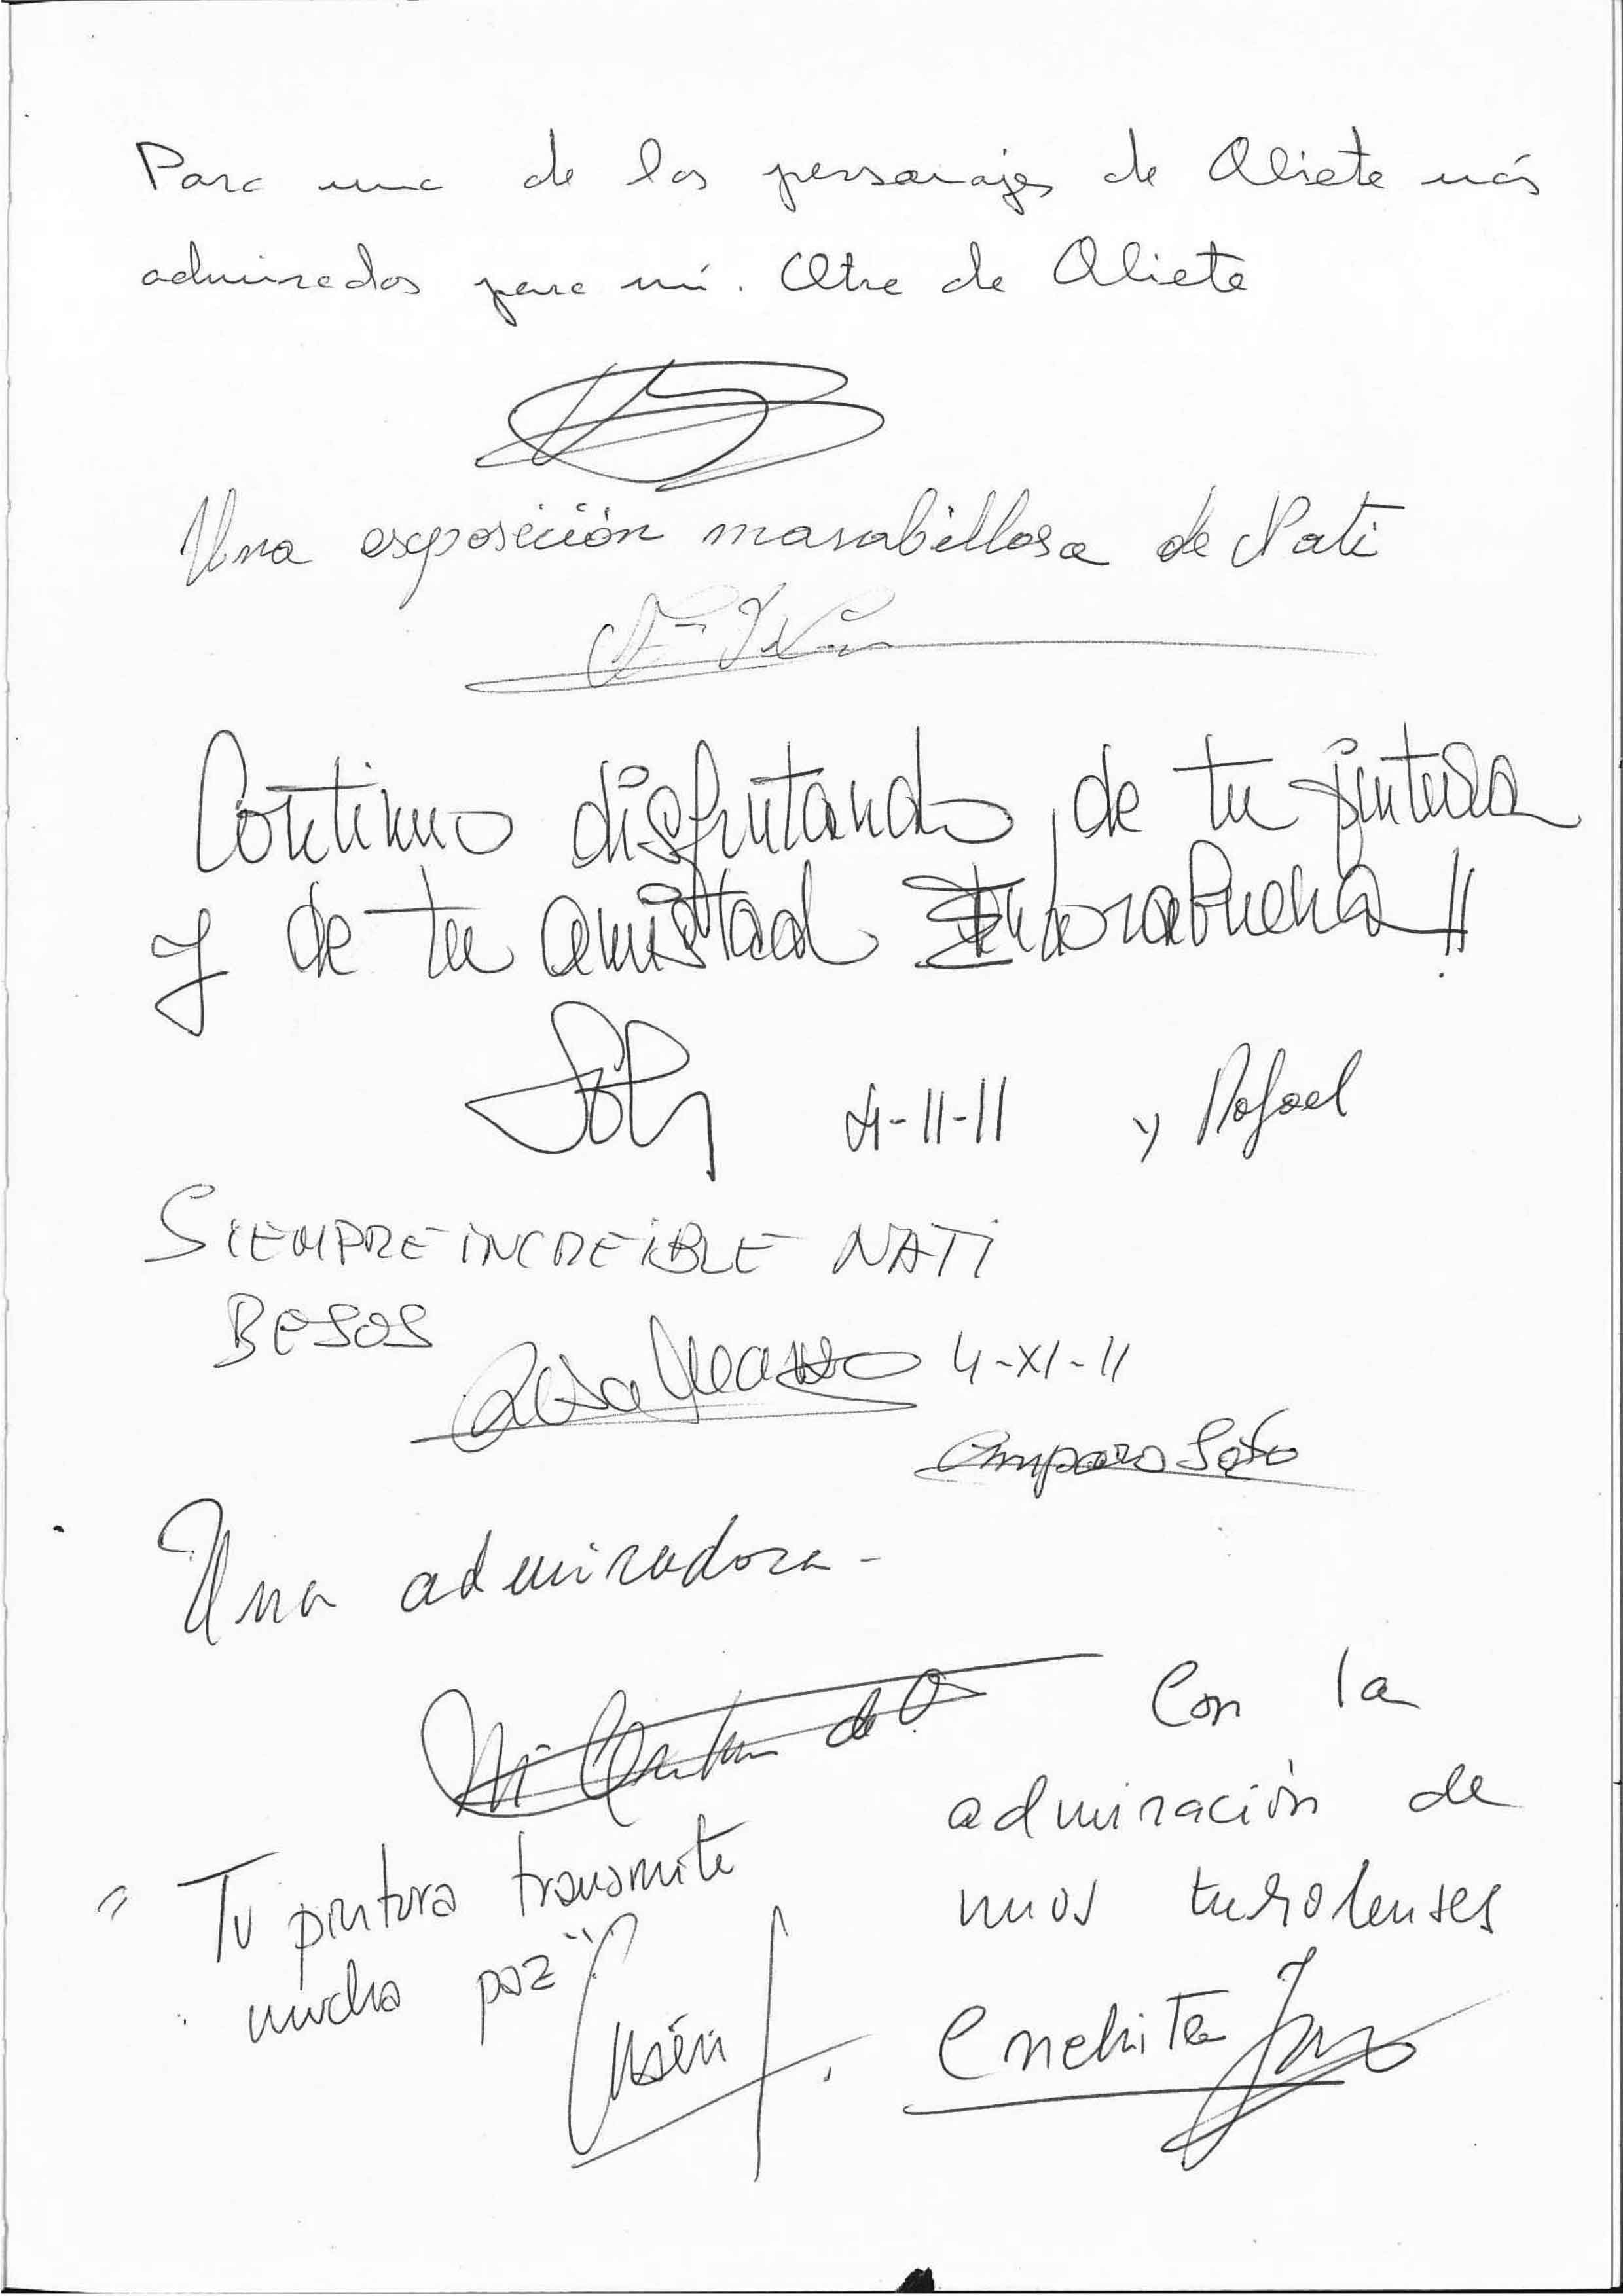 Para una de los personajes de Aliete más
admirados para mí. Otra de Aliete
Una exposición marabillosa de Nati
Continuo disfrutando de tu pintura
y de tu amistad Enhorabuena!!
4-11-11 y Rafael
SIEMPRE INCREIBLE NATI
BESOS
Rosa 4-XI-11
Amparo Soto
Una admiradora-
Con la
admiración de
unos turolenses
"Tu pintura transmite
mucha paz"
Conchita